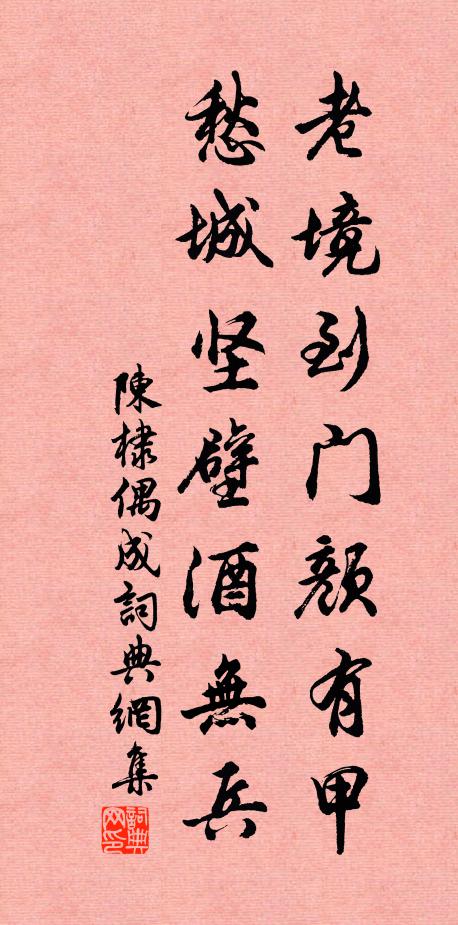 老境到门颜有甲
愁城坚壁酒無兵
陳棣偶成詞典網集
詞典
网印